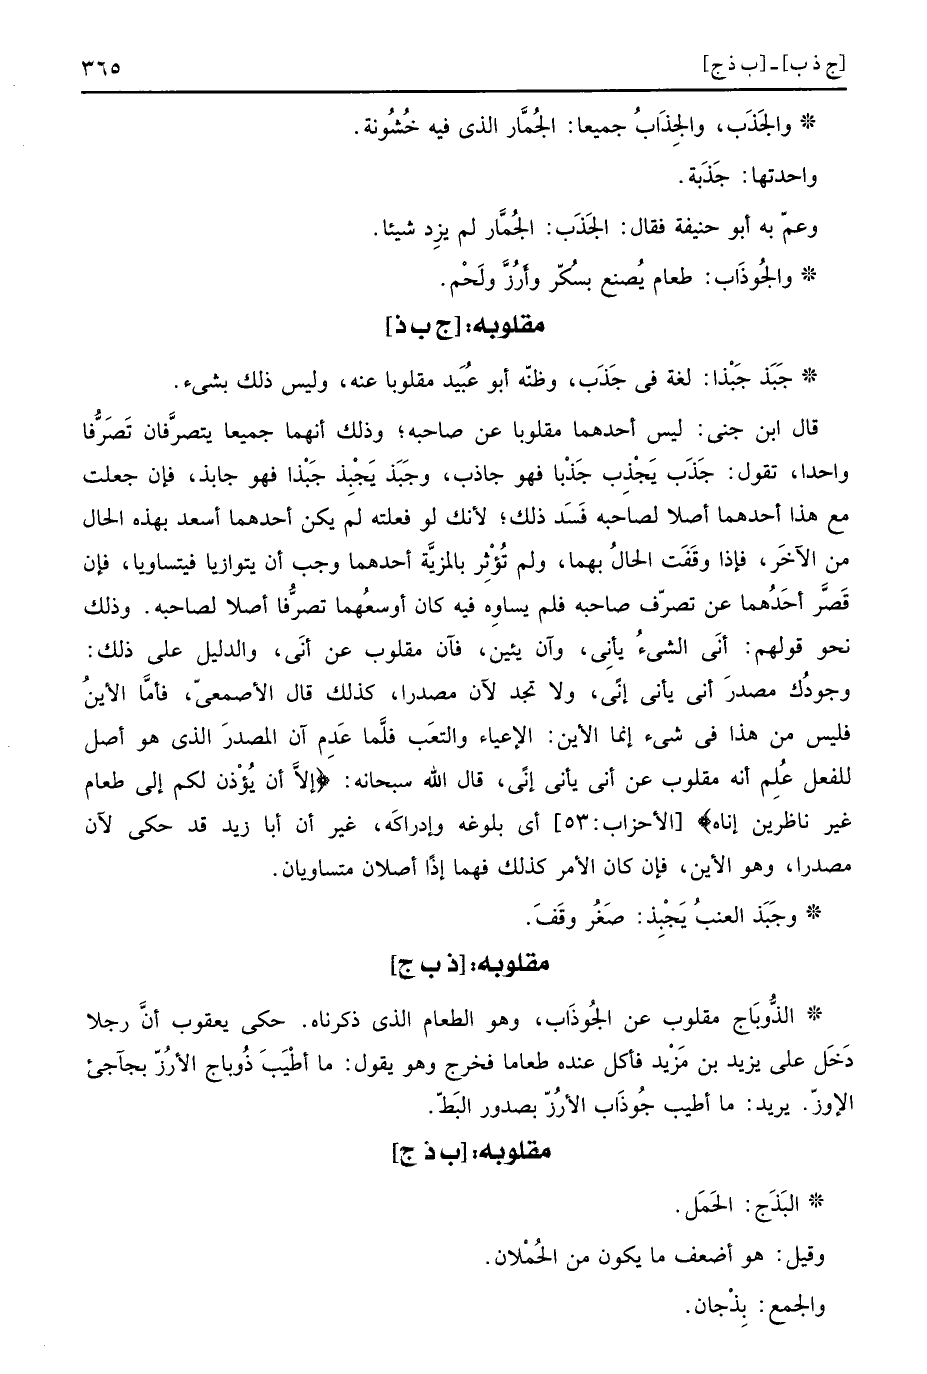 [ج ذ ب] ـ [ب ذ ج] ٣٦٥
* والجَذَب، والجِذَابُ جميعا: الجُمَّار الذى فيه خُشُونة.
واحدتها: جَذَبة.
وعمّ به أبو حنيفة فقال: الجَذَب: الجُمَّار لم يزِد شيئا.
* والجُوذَاب: طعام يُصنع بسكّر وأَرُزَّ ولَحْم.
مقلوبه: [ج ب ذ]
* جَبَذ جَبْذا: لغة فى جَذَب، وظنّه أبو عُبَيد مقلوبا عنه، وليس ذلك بشىء.
قال ابن جنى: ليس أحدهما مقلوبا عن صاحبه؛ وذلك أنهما جميعا يتصرَّفان تَصَرُّفا
واحدا، تقول: جَذَب يَجْذِب جَذْبا فهو جاذب، وجَبَذ يَجْبِذ جَبْذا فهو جابذ، فإن جعلت
مع هذا أحدهما أصلا لصاحبه فَسَد ذلك؛ لأنك لو فعلته لم يكن أحدهما أسعد بهذه الحال
من الآخَر، فإذا وقَفَت الحالُ بهما، ولم تُؤْثِر بالمزيَّة أحدهما وجب أن يتوازيا فيتساويا، فإن
قَصَّر أحَدُهما عن تصرّف صاحبه فلم يساوِه فيه كان أوسعُهما تصرُّفا أصلا لصاحبه. وذلك
نحو قولهم: أنَى الشىءُ يأنِى، وآن يئين، فآن مقلوب عن أنَى، والدليل على ذلك:
وجودُك مصدرَ أنى يأنى إنًى، ولا تجد لآن مصدرا، كذلك قال الأصمعىّ، فأمَّا الأينُ
فليس من هذا فى شىء إنما الأين: الإعياء والتعَب فلَّما عَدِم آن المصدرَ الذى هو أصل
للفعل عُلِم أنه مقلوب عن أنى يأنى إنًى، قال الله سبحانه: ﴿إلاَّ أن يُؤْذن لكم إلى طعام
غير ناظرين إناه﴾ [الأحزاب: ٥٣] أى بلوغه وإدراكَه، غير أن أبا زيد قد حكى لآن
مصدرا، وهو الأين، فإن كان الأمر كذلك فهما إذًا أصلان متساويان.
* وجَبَذ العنبُ يَجْبِذ: صَغُر وقَفَ.
مقلوبه: [ذ ب ج]
* الذُّوبَاج مقلوب عن الجُوذَاب، وهو الطعام الذى ذكرناه. حكى يعقوب أنَّ رجلا
دَخَل على يزيد بن مَزْيد فأكل عنده طعاما فخرج وهو يقول: ما أطْيَبَ ذُوباج الأرُزّ بجآجئ
الإوزّ. يريد: ما أطيب جُوذَاب الأرُزّ بصدور البَطّ.
مقلوبه: [ب ذ ج]
* البَذَج: الحَمَل.
وقيل: هو أضعف ما يكون من الحُمْلان.
والجمع: بِذْجان.